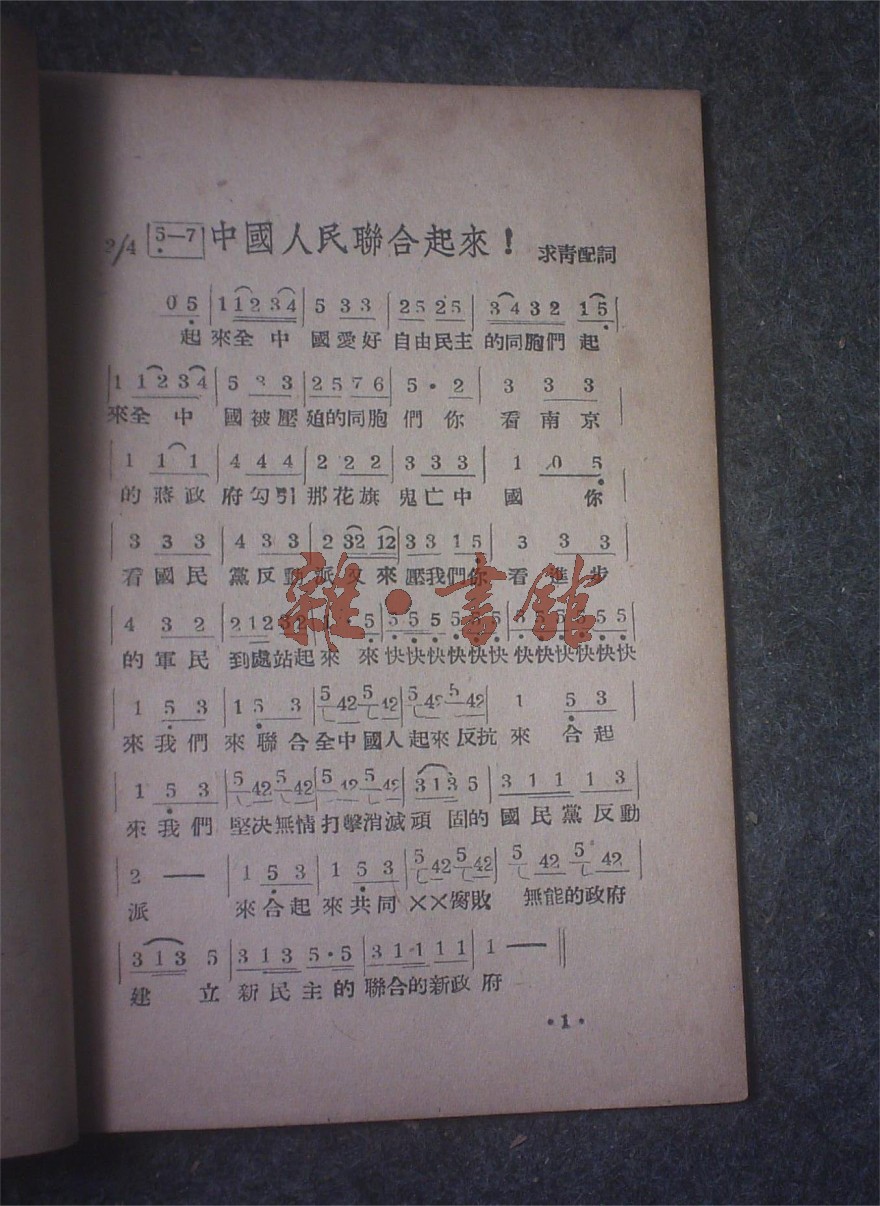 2/4 5—7 中國人民聯合起來！ 求靑配詞
0 5 | 1 1 2 3 4 | 5 3 3 | 2 5 2 5 | 3 4 3 2 1 5 |
起 來全 中 國愛好 自由民主 的同胞們 起
| 1 1 2 3 4 | 5 3 3 | 2 5 7 6 | 5 · 2 | 3 3 3 |
來全 中 國被壓 廹的同胞 們 你 看南京
1 1 1 | 4 4 4 | 2 2 2 | 3 3 3 | 1 0 5
的蔣政 府勾引 那花旗 鬼亡中 國 你
3 3 3 | 4 3 3 | 2 32 12 | 3 3 1 5 | 3 3 3 |
看國民 黨反動 派 來 壓我們你 看進步
4 3 2 | 2 1 2 3 2 | 1 · 5 | 5 5 5 5 5 5 | 5 5 5 5 5 5
的軍民 到處站起來 來 快快快快快快 快快快快快快
1 5 3 | 1 5 3 | 5 42 5 42 | 5 42 5 42 | 1 5 3
來我們 來聯合 全中國人 起來反抗 來 合起
1 5 3 | 5 42 5 42 | 5 42 5 42 | 3 1 3 5 | 3 1 1 1 3
來我們 堅决無情 打擊消滅 頑 固的 國民黨反動
2 — | 1 5 3 | 1 5 3 | 5 42 5 42 | 5 42 5 42
派 來合起 來共同 ××腐敗 無能的政府
3 1 3 5 | 3 1 3 5 · 5 | 3 1 1 1 1 | 1 — ‖
建 立 新民主的 聯合的新政 府
·1·
雜·書館